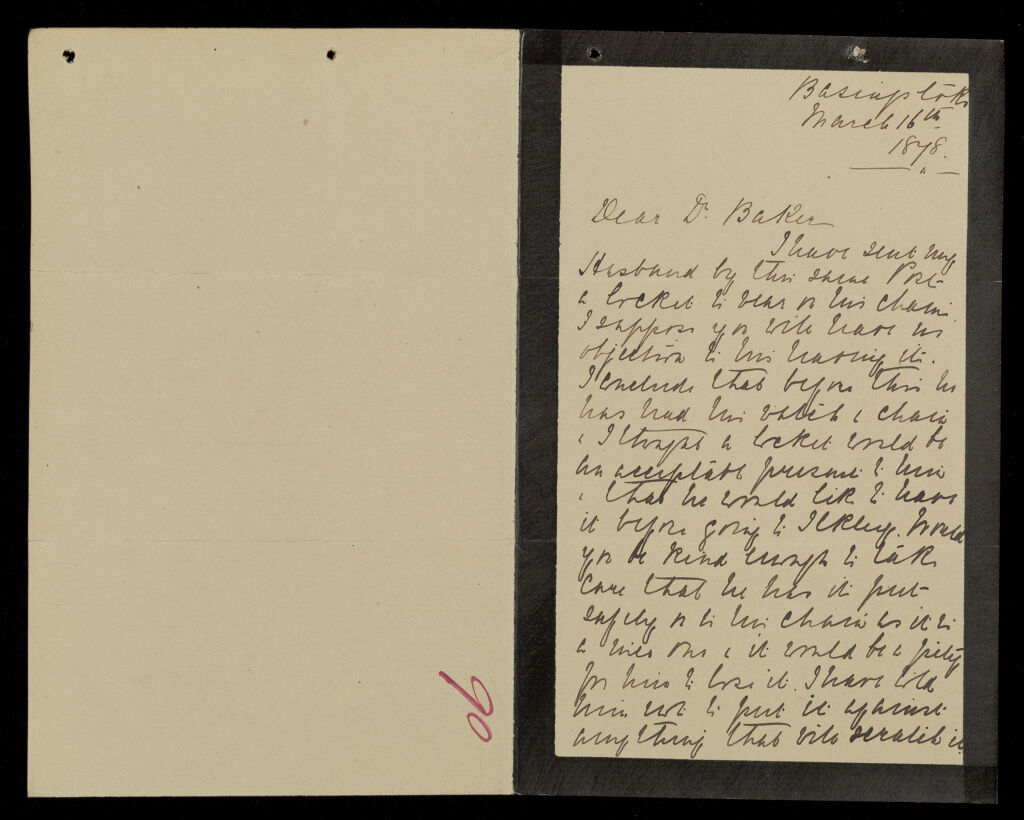 Basingstoke
March 16th
1878.
Dear Dr. Baker
I have sent my
Husband by this same Post
a locket to wear on his chain.
I suppose you will have no
objection to his having it.
I conclude that before this he
has had his watch & chain
& I thought a locket would be
an acceptable present to him
& that he would like to have
it before going to Ilkley. Would
you be kind enough to take
care that he has it put
safely on to his chain as it is
a nice one & it would be a pity
for him to lose it. I have told
him not to put it against
anything that will scratch it
90